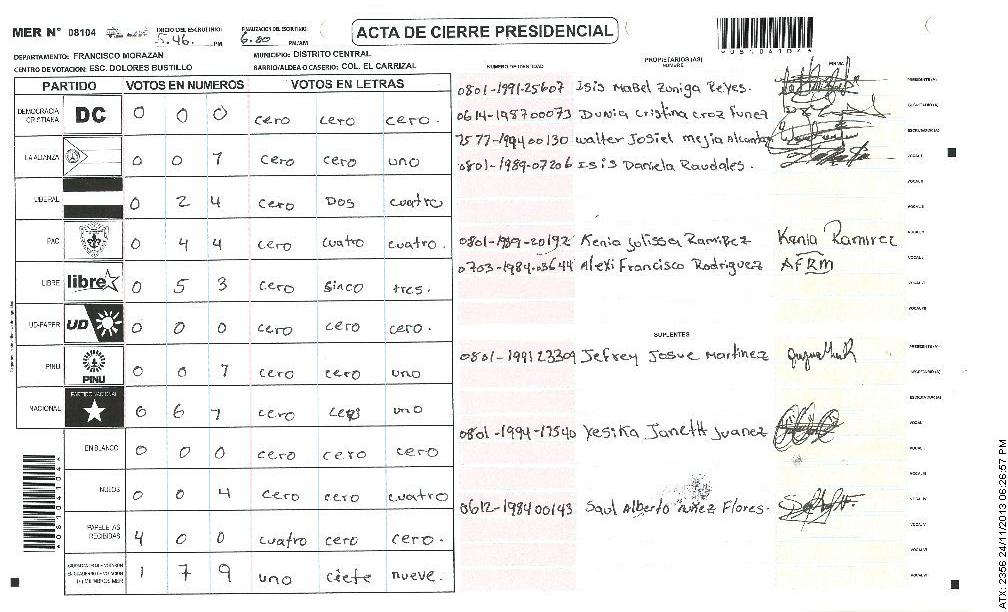 MER N° 08104 INICIO DEL ESCRUTINIO: 5:46 PM FINALIZACION DEL ESCRUTINIO: 6.20 PM/AM ACTA DE CIERRE PRESIDENCIAL
DEPARTAMENTO: FRANCISCO MORAZAN MUNICIPIO: DISTRITO CENTRAL
CENTRO DE VOTACION: ESC. DOLORES BUSTILLO BARRIO/ALDEA O CASERIO: COL. EL CARRIZAL
PARTIDO VOTOS EN NUMEROS VOTOS EN LETRAS
DEMOCRACIA CRISTIANA DC 0 0 0 cero cero cero.
LA ALIANZA 0 0 1 cero cero uno
LIBERAL 0 2 4 cero Dos cuatro
PAC 0 4 4 cero cuatro cuatro.
LIBRE libre 0 5 3 cero sinco tres.
UD-FAPER UD 0 0 0 cero cero cero.
PINU PINU 0 0 1 cero cero uno
NACIONAL PARTIDO NACIONAL 0 6 1 cero uno
EN BLANCO 0 0 0 cero cero cero
NULOS 0 0 4 cero cero cuatro
PAPELETAS RECIBIDAS 4 0 0 cuatro cero cero.
1 7 9 uno ciete nueve.
NUMERO DE IDENTIDAD PROPIETARIOS (AS) NOMBRE FIRMA
0801-1991-25607 Isis Mabel Zuniga Reyes. PRESIDENTE (A)
0614-198700073 Dunia Cristina Croz Funez SECRETARIO (A)
1577-199400130 walter Josiel mejia Alcantara ESCRUTADOR (A)
0801-1989-07206 Isis Daniela Raudales. VOCAL I
VOCAL II
VOCAL III
0801-1989-20192 Kenia Julissa Ramirez Kenia Ramirez VOCAL IV
0703-1984-03644 Alexi Francisco Rodriguez AFRM VOCAL V
VOCAL VI
VOCAL VII
SUPLENTES
0801-199123309 Jefrey Josue Martinez PRESIDENTE (A)
SECRETARIO (A)
ESCRUTADOR (A)
0801-1994-17540 Yesika Janeth Juanez VOCAL I
VOCAL II
VOCAL III
0612-198400143 Saul Alberto Nuñez Flores. VOCAL IV
VOCAL V
VOCAL VI
VOCAL VII
ATX: 2356 24/11/2013 06:26:57 PM